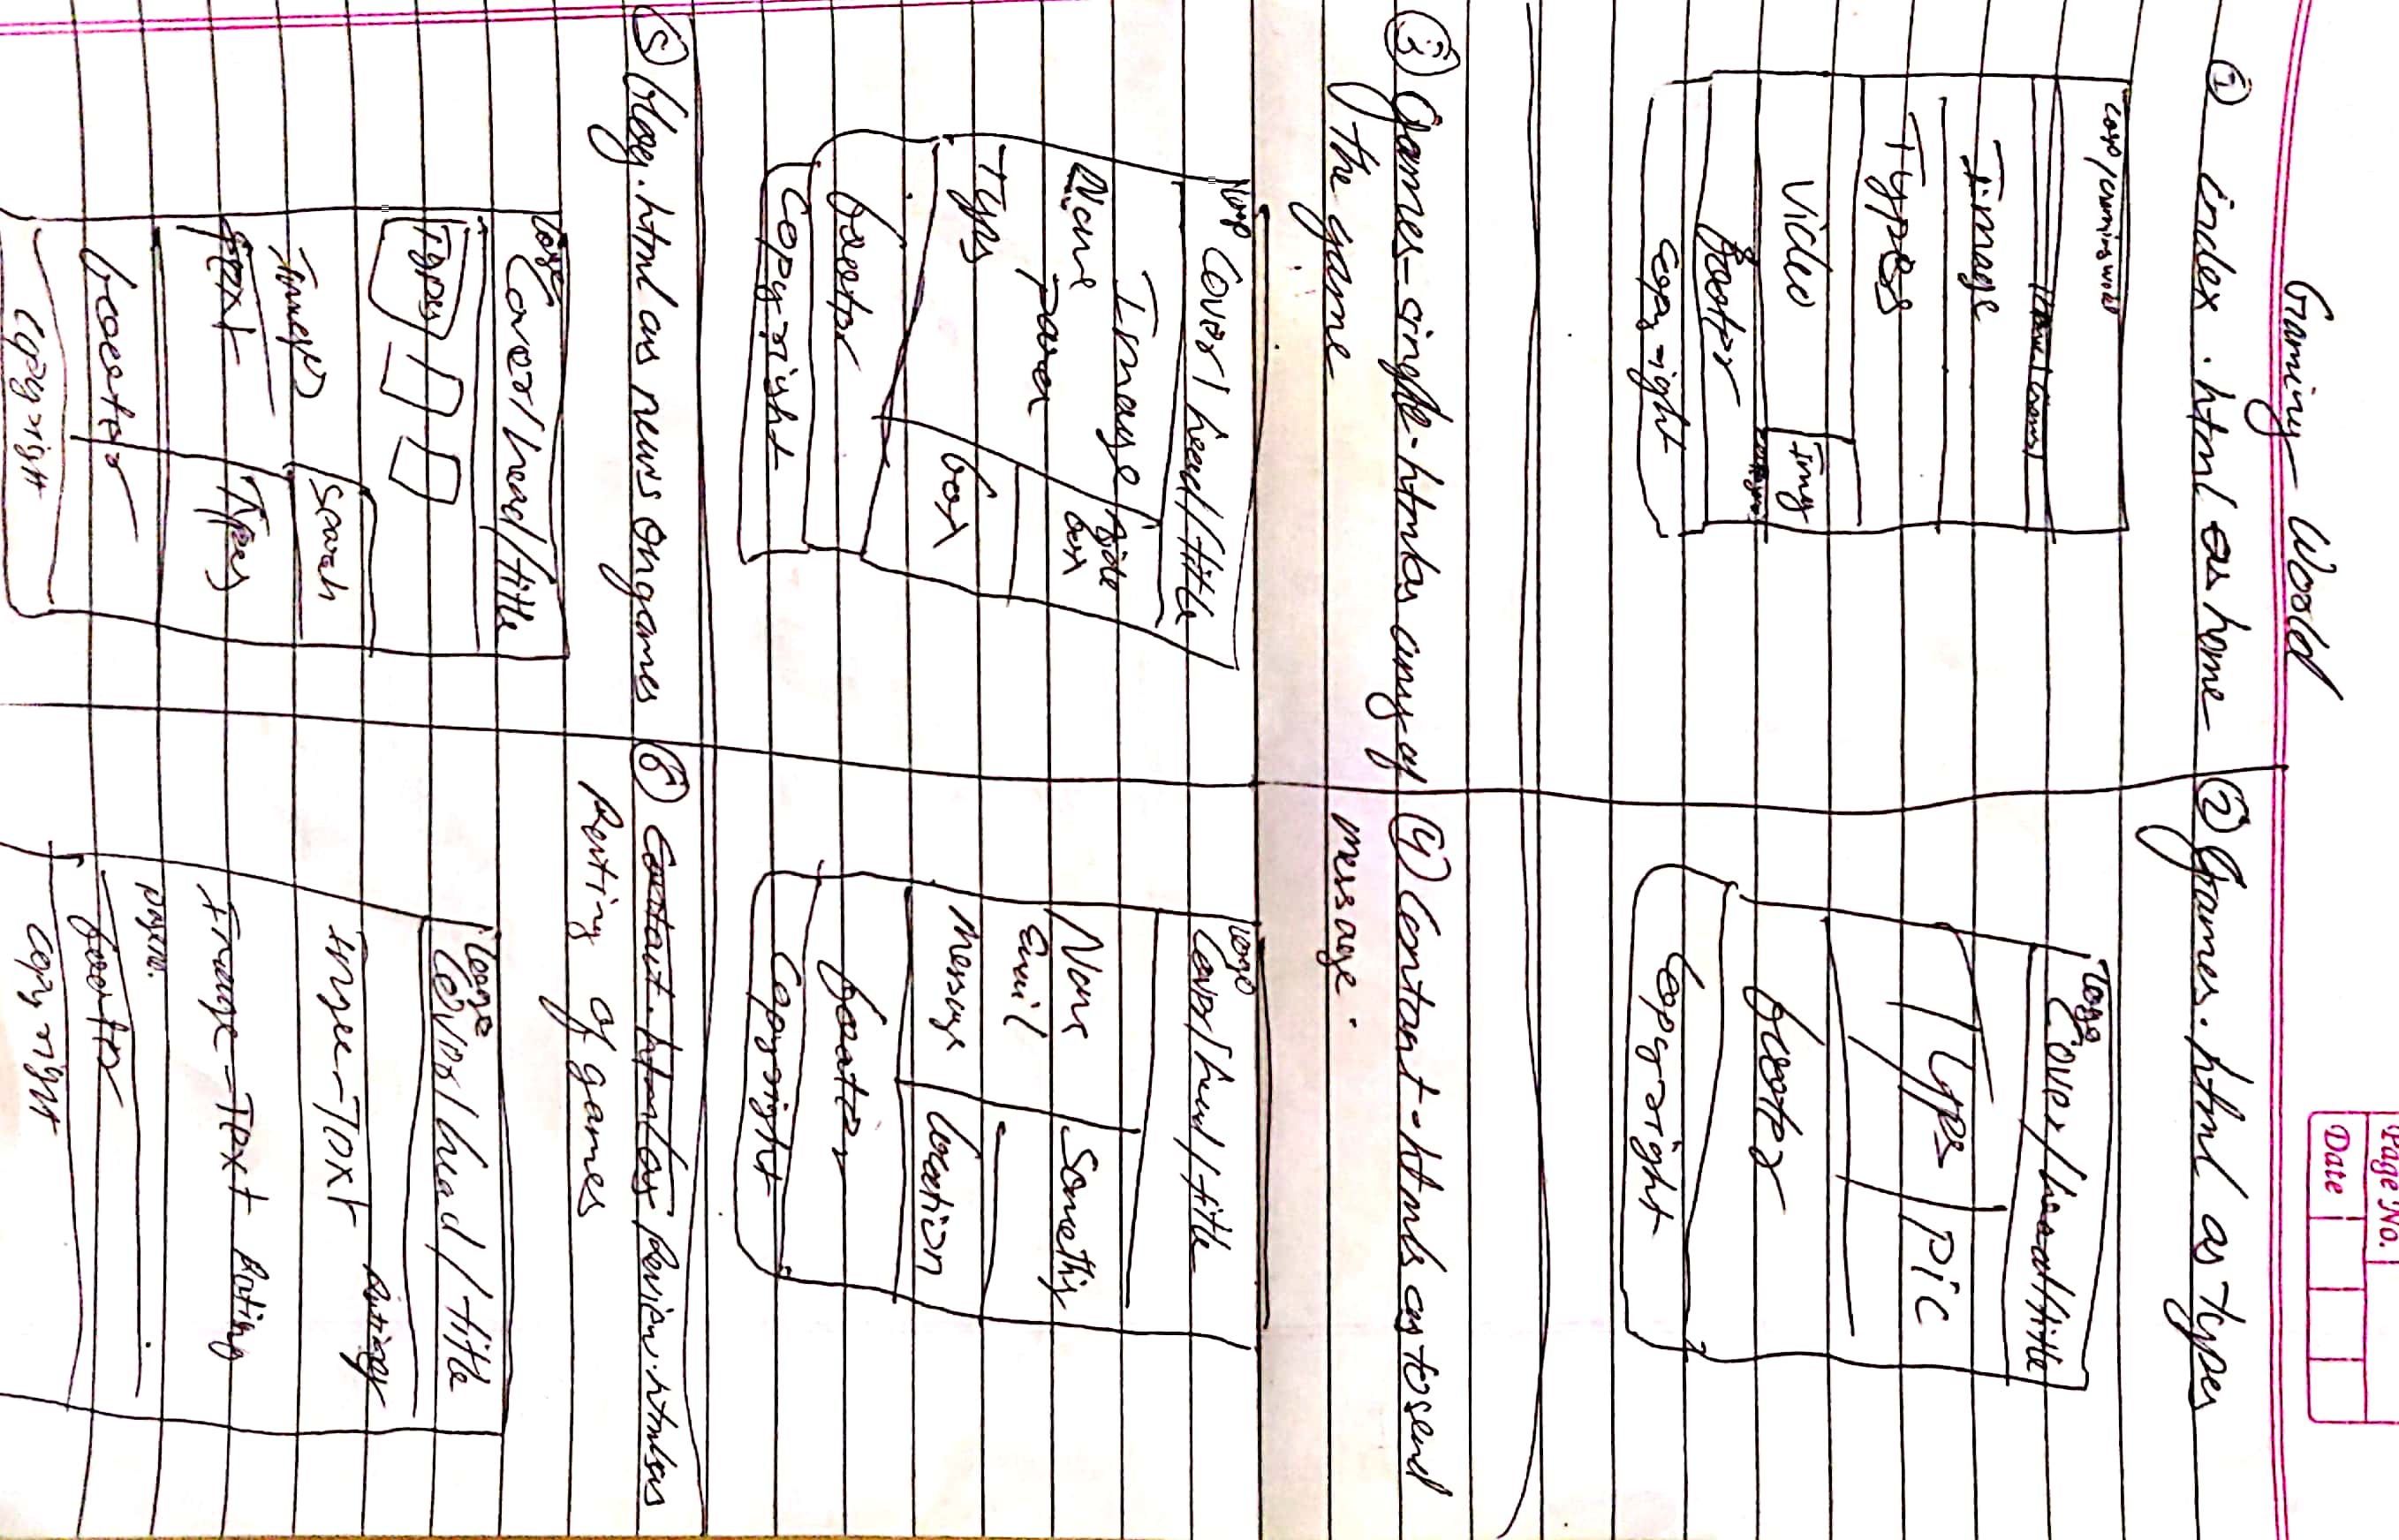 Page No.
Date
Gaming World
① index.html as home
Logo / Gaming World
Image
Types
Video
Img
footer
Copyright
② Games.html as types
Logo
Cover/head/title
Typs
pic
footer
Copyright
③ Games-single.html as any of
the game
Cover/head/title
Image
side
box
Name
para
Typs
box
footer
Copyright
④ Contant.htmls as to send
message.
Logo
Cover/head/title
Name
Somethig
Email
Message
Location
footer
Copyright
⑤ blog.html as news on games
Logo
Cover/head/title
Types
Search
Images
Text
Types
footer
Copyright
⑥ Contact.html as Review.html as
Rating of games
Logo
Cover/head/title
Rating
Image-Text
Image-Text Rating
page no.
footer
Copyright